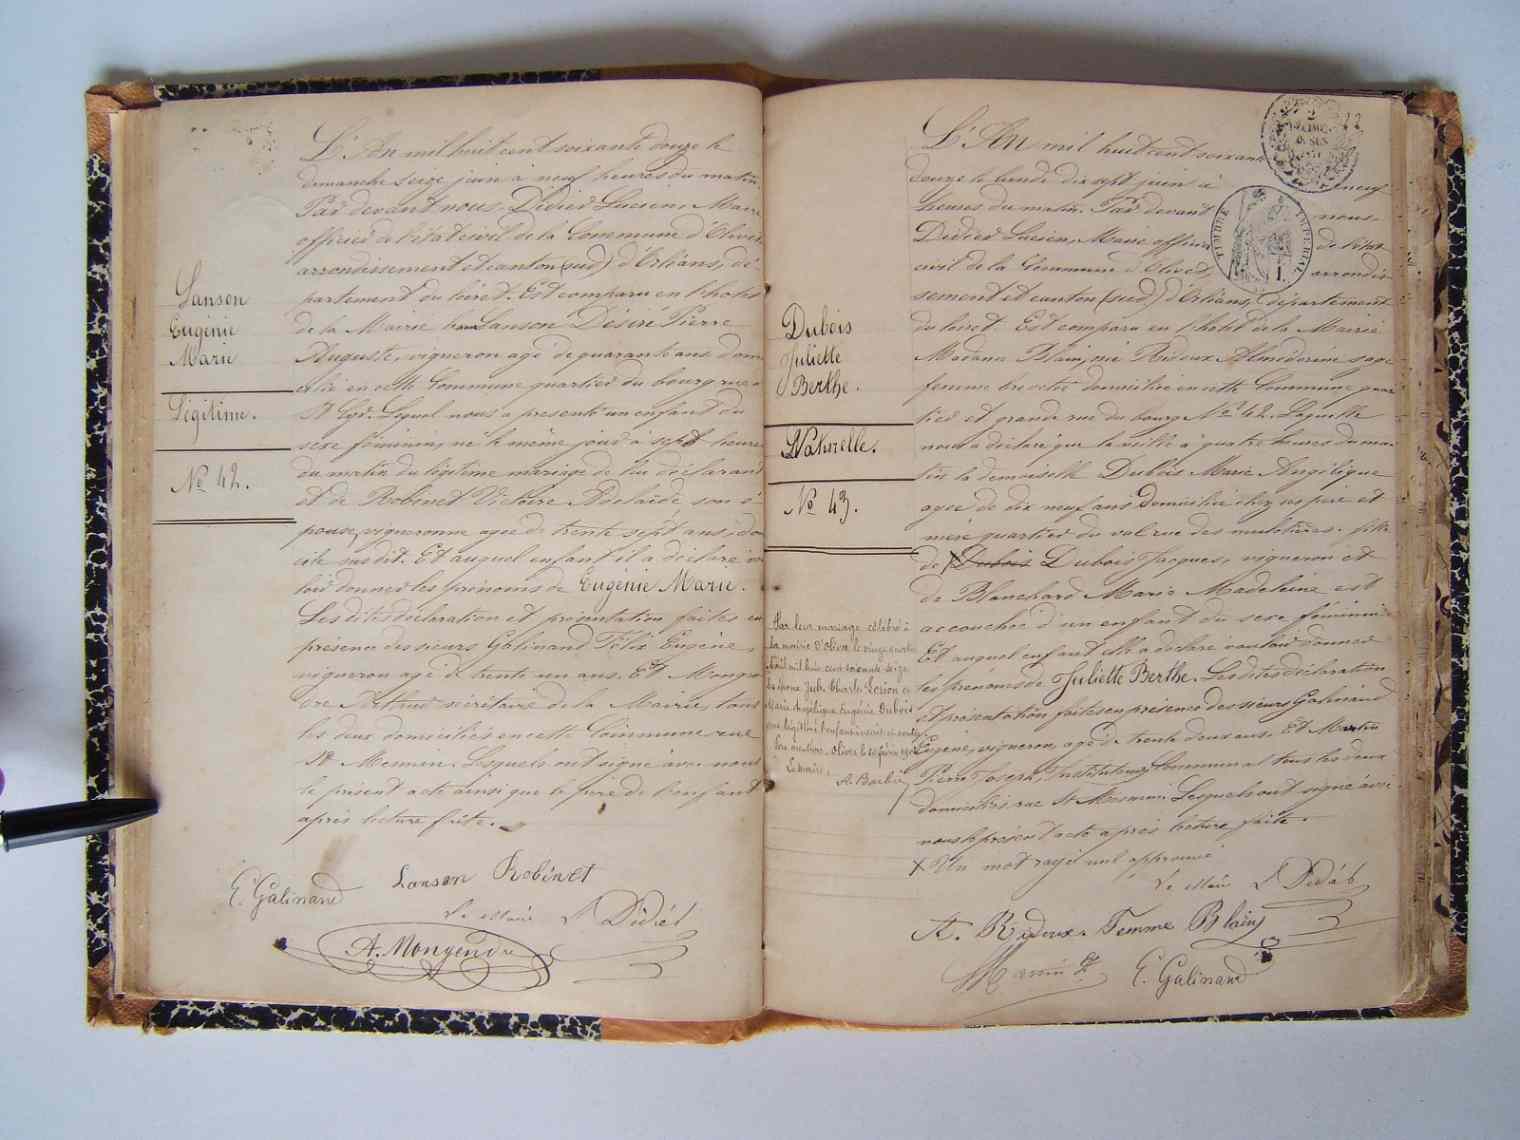 Lanson
Eugénie
Marie
Légitime.
No 42.
L'An mil huit cent soixante douze le
dimanche seize juin à neuf heures du matin.
Par devant nous Didier Lucien, Maire
officier de l'état civil de la Commune d'Olivet,
arrondissement et canton (sud) d'Orléans, dé-
partement du loiret. Est comparu en l'hotel
de la Mairie Lanson Désiré Pierre
Auguste, vigneron agé de quarante ans domi-
cilié en cette Commune quartier du bourg rue
St Lequel nous a présenté un enfant du
sexe féminin, né le même jour à sept heures
du matin du légitime mariage de lui déclarant
et de Robinet Victoire Adelaïde son é-
pouse, vigneronne agée de trente sept ans, do
cile susdit. Et auquel enfant il a déclaré vou
loir donner les prénoms de Eugénie Marie.
Les dites déclaration et présentation faites en
présence des sieurs Galinand Félix Eugène,
vigneron agé de trente un ans. Et Mongen
dre Arthur secrétaire de la Mairie, tous
les deux domiciliés en cette Commune rue
St Mesmin. Lesquels ont signé avec nous
le présent acte ainsi que le père de l'enfant
après lecture faite.
E. Galinand
Lanson Robinet
Le Maire L Didier
A. Mongendre
2
TIMBRE IMPERIAL
1
Dubois
Juliette
Berthe.
Naturelle.
No 43.
Par leur mariage célébré à
la mairie d'Olivet le vingt quatre
Août mil huit cent soixante seize
les époux Jules Charles Lorion et
Marie Angélique Eugénie Dubois
ont légitimé l'enfant
mention. Olivet le
Le maire,
A. Barbier
L'An mil huit cent soixante
douze le lundi dix sept juin à neuf
heures du matin. Par devant nous
Didier Lucien, Maire officier de l'état
civil de la Commune d'Olivet, arrondis-
sement et canton (sud) d'Orléans, département
du loiret. Est comparu en l'hotel de la Mairie
Madame Blain, née Ridoux sage-
femme domiciliée en cette Commune quar
tier et grande rue du bourg No 42. Laquelle
nous a déclaré que la veille à quatre heures du ma-
tin la demoiselle Dubois Marie Angélique
agée de dix neuf ans domiciliée chez ses père et
mère quartier du val rue des muletières. fille
de X Dubois Dubois Jacques, vigneron et
de Blanchard Marie Madeleine est
accouchée d'un enfant du sexe féminin
Et auquel enfant elle a déclaré vouloir donner
les prénoms de Juliette Berthe. Les dites déclaration
et présentation faites en présence des sieurs Galinand
Eugène, vigneron, agé de trente deux ans. Et Martin
Pierre Joseph, Instituteur Communal tous les deux
domiciliés rue St Mesmin. Lesquels ont signé avec
nous le présent acte après lecture faite.
X Un mot rayé nul approuvé
Le Maire L Didier
A. Ridoux. Femme Blain
Martin E. Galinand